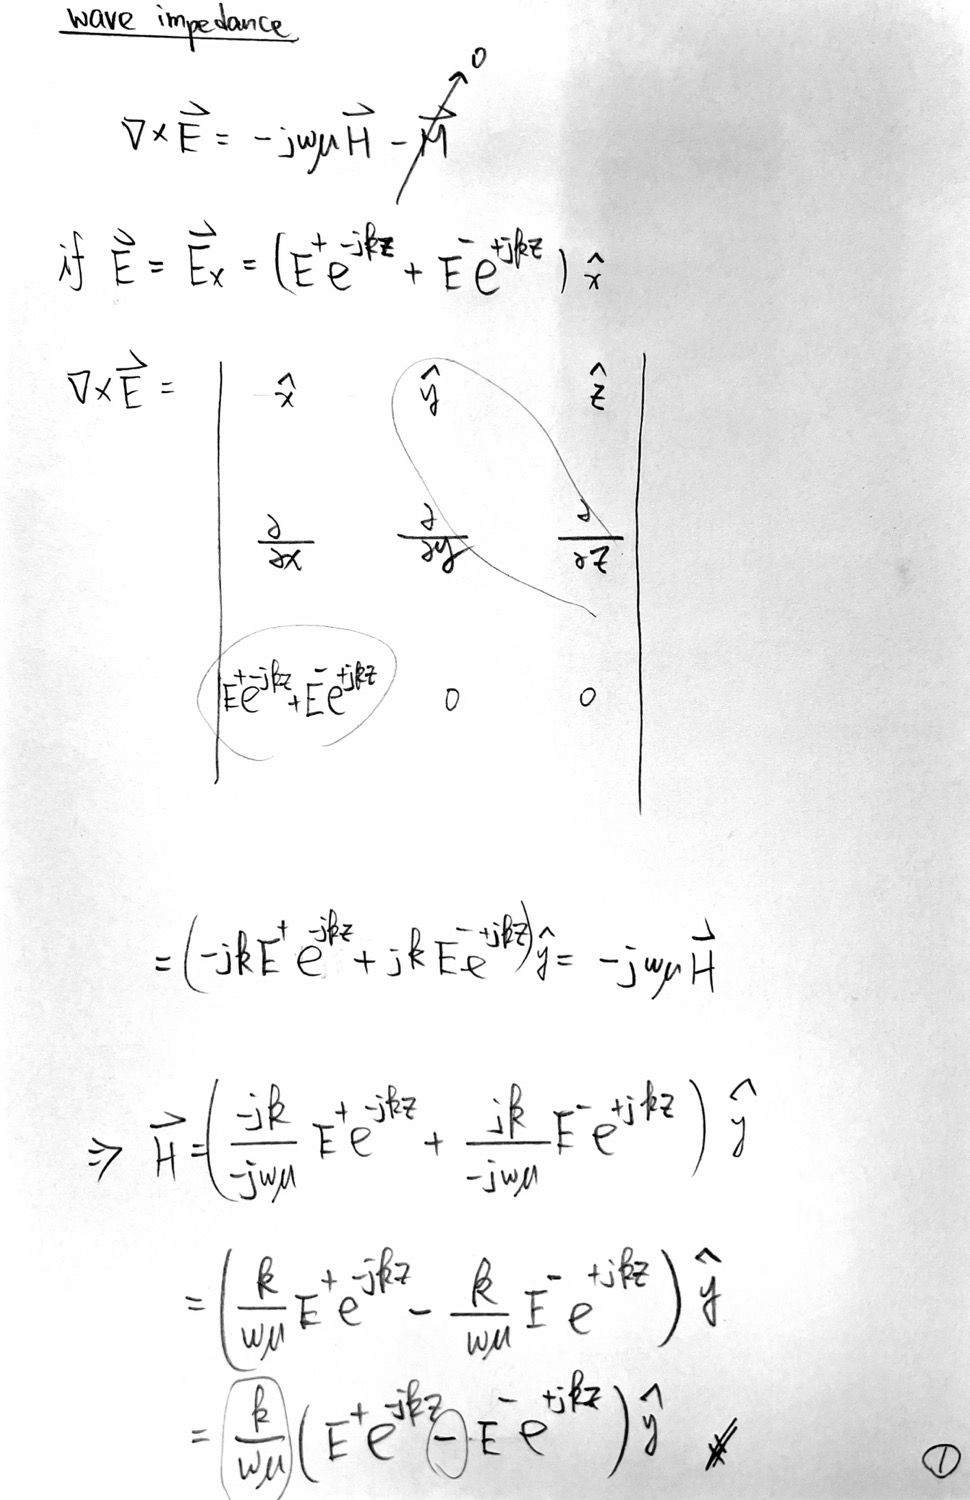 wave impedance
∇×E⃗ = -jωμH⃗ - M⃗ 0
if E⃗ = E⃗x = (E⁺e^{-jkz} + E⁻e^{+jkz}) x̂
∇×E⃗ = | x̂ ŷ ẑ |
∂/∂x ∂/∂y ∂/∂z
E⁺e^{-jkz} + E⁻e^{+jkz} 0 0
= (-jkE⁺e^{-jkz} + jkE⁻e^{+jkz}) ŷ = -jωμH⃗
⇒ H⃗ = (-jk/-jωμ E⁺e^{-jkz} + jk/-jωμ E⁻e^{+jkz}) ŷ
= (k/ωμ E⁺e^{-jkz} - k/ωμ E⁻e^{+jkz}) ŷ
= k/ωμ (E⁺e^{-jkz} - E⁻e^{+jkz}) ŷ
①